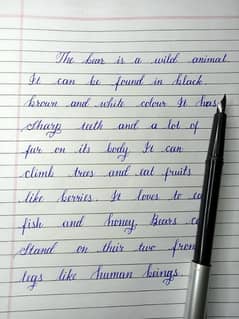 The bear is a wild animal.
It can be found in black.
brown and white colour It has
sharp teeth and a lot of
fur on its body It can
climb trees and eat fruits
like berries. It loves to
fish and honey. Bears
Stand on their two
legs like human beings